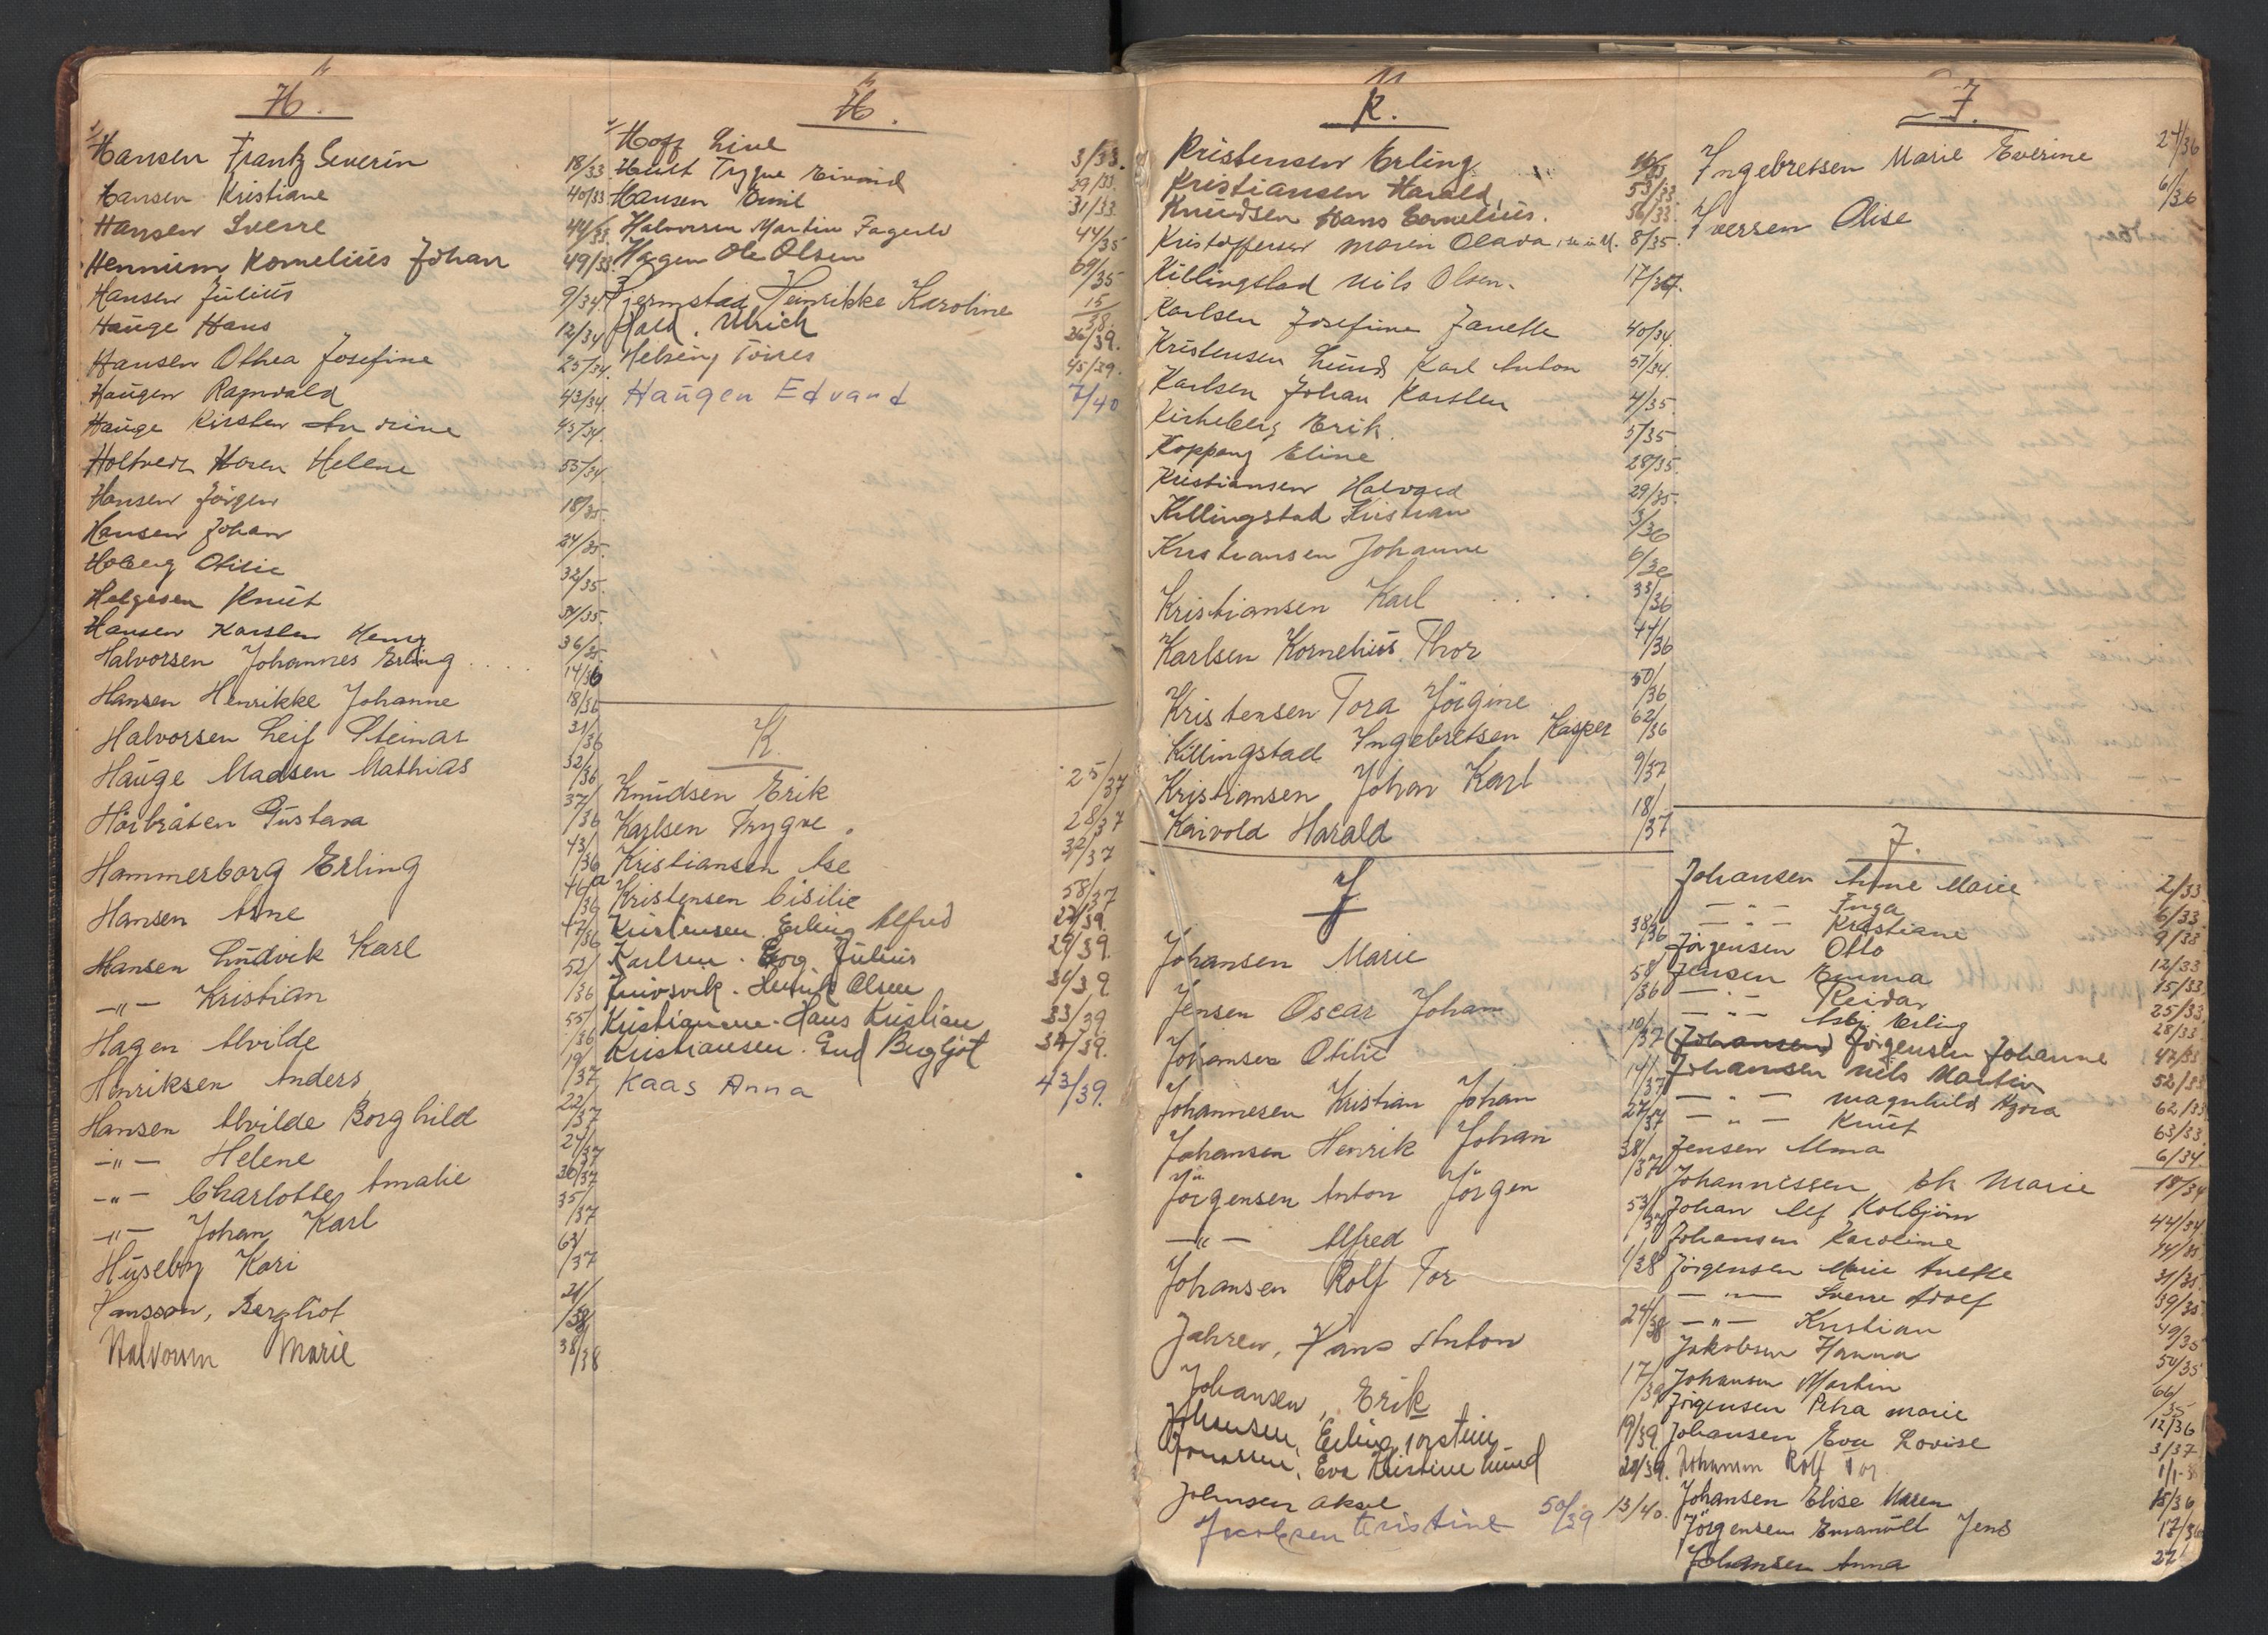 H.
Hansen Frantz Severin 18/33
Hansen Kristiane 40/33
Hansen Sverre 44/33
Hennum Kornelius Johan 49/33
Hansen Julius 9/34
Hauge Hans 12/34
Hansen Othea Josefine 25/34
Haugen Ragnvald 43/34
Hauge Kirsten Andrine 45/34
Holtvedt Maren Helene 55/34
Hansen Jörgen 18/35
Hansen Johan 24/35
Hoberg Otilie 32/35
Helgesen Knut 34/35
Hansen Karsten Henry 36/35
Halvorsen Johannes Erling 14/36
Hansen Henrikke Johanne 18/36
Halvorsen Leif Steinar 31/36
Hauge Madsen Mathias 32/36
Horbråten Gustava 37/36
Hammerborg Erling 43/36
Hansen Arne 46a/36
Hansen Ludvik Karl 47/36
-"- Kristian 52/36
Hagen Alvilde 55/36
Henriksen Anders 19/37
Hansen Alvilde Borghild 22/37
-"- Helene 24/37
-"- Charlotte Amalie 30/37
-"- Johan Karl 35/37
Huseby Kari 63/37
Hansson, Bergliot 21/38
Halvorsen Marie 38/38
H.
Hoff Line 3/33
Hult Trygve Eivind 29/33
Hansen Emil 31/33
Halvorsen Martin Fagerli 44/35
Hagen Ole Olsen 69/35
Hjermstad Henrikke Karoline 15/38
Hald. Ulrich 26/39.
Helseng Toires 45/39.
Haugen Edvard 7/40
K.
Knudsen Erik 25/37
Karlsen Trygve. 28/37
Kristiansen Åse 32/37
Kristensen Cisilie 58/37
Kristensen. Erling Alfred 22/39
Karlsen. Borg Julius 29/39
Henrik Olsen 31/39
Kristiansen. Hans Kristian 33/39
Kristiansen. Gud Bergljot 37/39.
Kaas Anna 43/39.
K.
Kristensen Erling
Kristiansen Harald 53/33
Knudsen Hans Cornelius. 56/33
Kristoffersen Maren Olava 8/35
Killingstad Nils Olsen. 17/34.
Karlsen Josefine Janette 40/34
Kristensen Lund Karl Anton 57/34
Karlsen Johan Karsten 4/35
Kirkeberg Erik. 5/35
Koppang Eline 28/35
Kristiansen Halvard 29/35
Killingstad Kristian 3/36
Kristiansen Johanne 6/36
Kristiansen Karl 33/36
Karlsen Kornelius Thor 44/36
Kristensen Tora Jörgine 50/36
Killingstad Ingebretsen Kasper 62/36
Kristiansen Johan Karl 9/37
Kaivold Harald 18/37
J
Johansen Marie 38/36
Jensen Oscar Johan 58/36
Johansen Otilie 10/37
Johannesen Kristian Johan 14/37
Johansen Henrik Johan 27/37
Jörgensen Anton Jörgen 38/37
-"- Alfred 53/37
Johansen Rolf Tor 1/38
Jahren, Hans Anton 24/38
Johansen, Erik 17/39
Johansen, Erling Torstein 19/39
Jonassen, Eva Kristine Lund 20/39.
Johnsen Aksel 50/39
Jacobsen Kristine 13/40.
I.
Ingebretsen Marie Everine 27/36
Iversen Elise 6/36
J.
Johansen Anne Marie 2/33
-"- Inga 6/33
-"- Kristiane 9/33
Jörgensen Otto 12/33
Jensen Emma 15/33
-"- Reidar 25/33
-"- Asbj Erling 28/33
(Johansen) Jörgensen Johanne 47/33
Johansen Nils Martin 52/33
-"- Magnhild Agora 62/33
-"- Knut 63/33
Jensen Alma 6/34
Johannessen Ek Marie 18/34
Johan Alf Kolbjörn 44/34
Johansen Karoline 14/35
Jörgensen Marie Anette 31/35
-"- Sverre Adolf 39/35
-"- Kristian 49/35
Jakobsen Hanna 50/35
Johansen Martin 66/35
Jörgensen Petra Marie 12/36
Johansen Eva Lovise 3/37
Johansen Rolf Tor 1/1-38
Johansen Elise Maren 15/36
Jörgensen Emanuel Jens 17/36
Johansen Anna 22